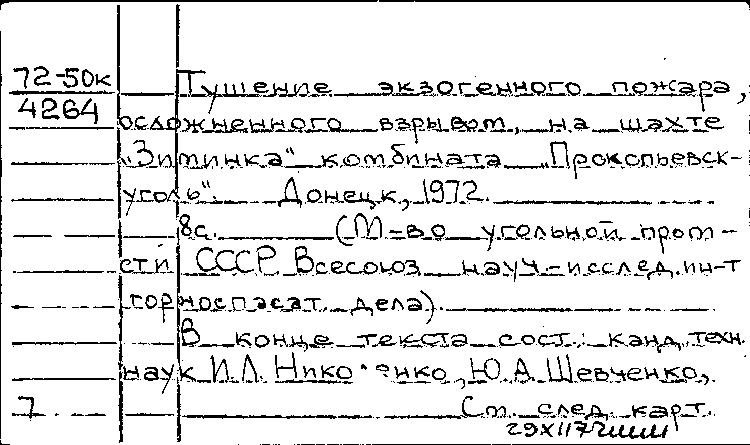 72-50к
4264
Тушение экзогенного пожара,
осложненного взрывом, на шахте
„Зиминка" комбината „Прокопьевск-
уголь". Донецк, 1972.
8с. (М-во угольной пром-
сти СССР. Всесоюз науч.-исслед. ин-т
горноспасат. дела).
В конце текста сост.: канд. техн.
наук И.Л. Ю.А. Шевченко,
7 См. след. карт.